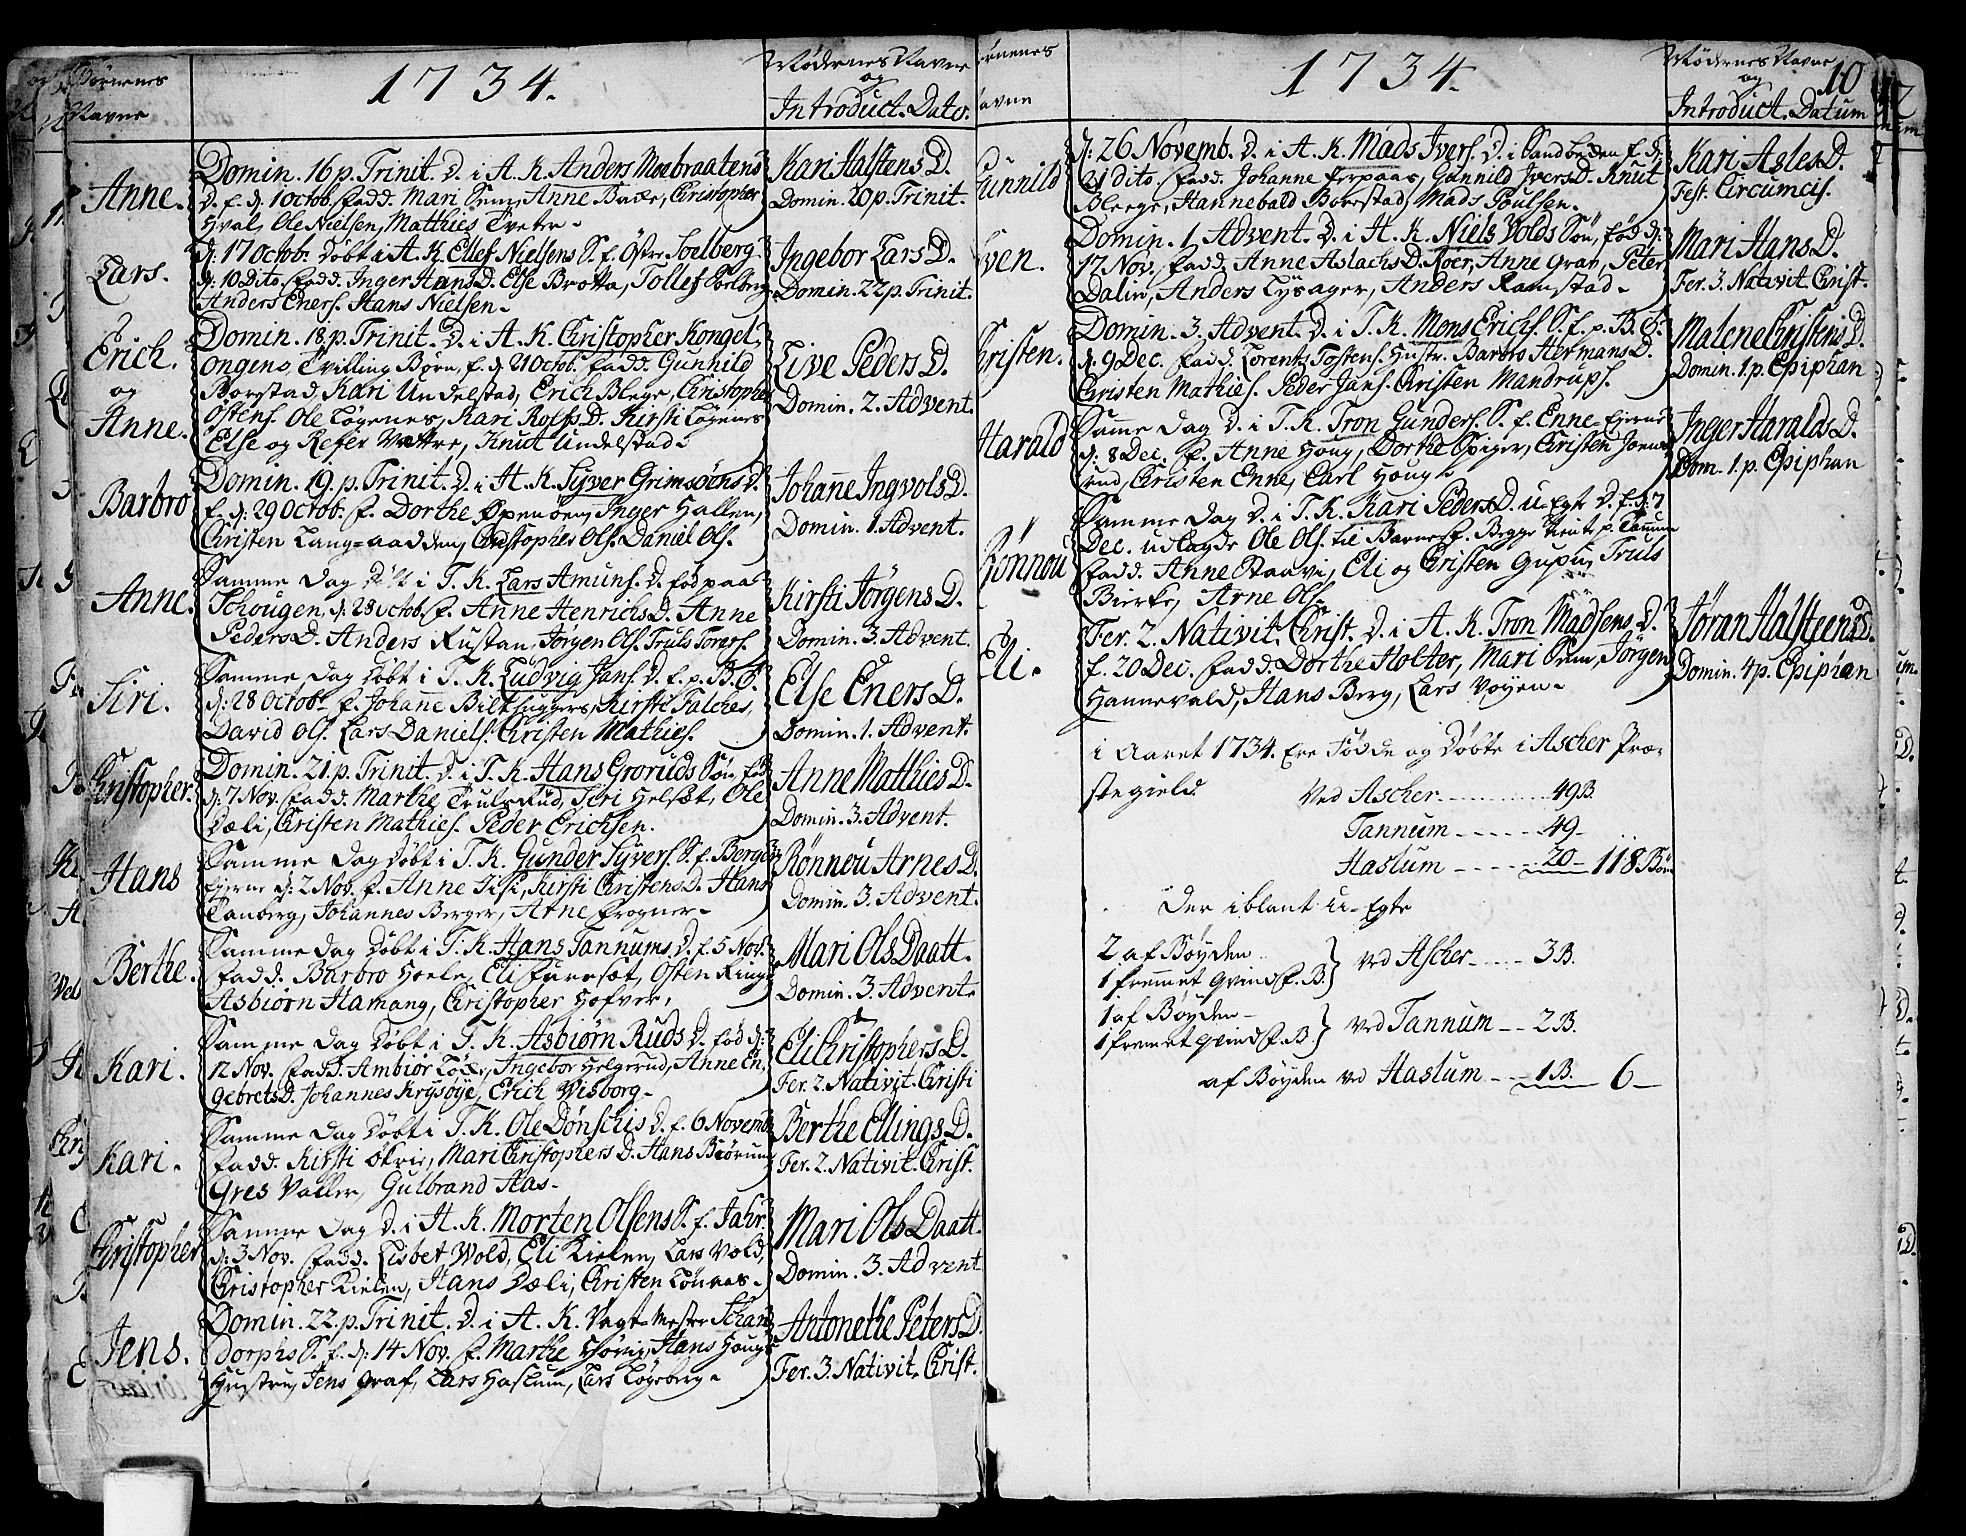 Børnenes
Navne
1734.
Mødernes Navne
og
Introduct. Dato.
Anne.
Domin. 16 p. Trinit. D. i A. K. Anders Moebraatens
D. f. d. 1 Octob. Fadd. Mari Sem, Anne Bache, Christopher
Hval, Ole Nielsen, Matthies Tveter.
Kari Halstens D.
Domin. 20 p. Trinit.
Lars.
d. 17 Octob. Døbt i A. K. Ellef Nielsens S. f. Øster Soelberg
d. 10 Dito. Fadd. Inger Hans D. Else Brotta, Tollef Solberg
Anders Eners. Hans Nielsen.
Ingebor Lars D.
Domin. 22 p. Trinit.
Erich.
og
Anne.
Domin. 18. p. Trinit. D. i A. K. Christopher Kongel
ongens Tvilling Børn, f. d. 21 Octob. Fadd. Gunnild
Borstad, Kari Undelstad, Erich Blege, Christopher
Østens. Ole Løgenes, Kari Rolfs D. Kirsti Løgenes
Else og Refer Vættre, Knut Undelstad.
Live Peders D.
Domin. 2. Advent.
Barbro
Domin. 19. p. Trinit. D. i A. K. Syver Grimsøens D.
f. d. 29 Octob. F. Dorthe Openøen, Inger Hallen,
Christen Lang-aadden, Christopher Ols. Daniel Ols.
Johanne Ingvols D.
Domin. 1. Advent.
Anne.
Samme Dag Døbt i T. K. Lars Amuns. D. fød paa
Schougen, d. 28 Octob. F. Anne Henrichs D. Anne
Peders D. Anders Rustan, Jørgen Ols. Truls Tores.
Kirsti Jørgens D.
Domin. 3. Advent.
Siri.
Samme Dag Døbt i T. K. Ludvig Jans. D. f. p. B. F.
d. 28 Octob. F. Johanne Bilthuggers, Kirsti Falches,
David Ols. Lars Daniels. Christen Mathies.
Else Eners D.
Domin. 1. Advent.
Christopher.
Domin. 21 p. Trinit. D. i T. K. Hans Groruds Søn, fød
d. 7 Nov. Fadd. Marthe Trulsrud, Siri Helset, Ole
Dæli, Christen Mathies. Peder Erichsen.
Anne Matthies D.
Domin. 3. Advent.
Hans
Samme Dag Døbt i T. K. Gunder Syvers. S. f. Berger
Eierne d. 2 Nov. F. Anne Kirsti Christens D. Hans
Tanberg, Johannes Berger, Arne Frogner.
Rønnou Arnes D.
Domin. 3. Advent.
Berthe.
Samme Dag Døbt i T. K. Hans Tannums. D. f. 5 Nov.
Fadd. Barbro Hoele, Eli Furuset, Osten Rings
Asbiørn Hamang, Christopher Hofver,
Mari Ols Daatt.
Domin. 3. Advent.
Kari.
Samme Dag Døbt i T. K. Asbiørn Ruds D. fød d:
12 Nov. Fadd. Ambiør Løcke, Ingebor Helgerud, Anne En,
gebrets D. Johannes Krysøye, Erich Visborg.
Eli Christophers D.
Fer. 2. Nativit. Christi
Kari.
Samme Dag Døbt i T. K. Ole Dønschis D. f. 6 Novemb.
Fadd. Kirsti Økrie, Mari Christophers D. Hans Biørum
Gres Valler, Gulbrand Aas.
Berthe Ellings D.
Fer. 2. Nativit. Christ.
Christopher
Samme Dag D. i A. K. Morten Olsens S. f. Jahr.
d: 3 Nov. Fadd. Lisbet Wold, Eli Kielen, Lars Vold,
Christopher Kielen, Hans Dæli, Christen Lønaas.
Mari Ols Daatt.
Domin. 3. Advent
Jens.
Domin. 22. p. Trinit. D. i A. K. Vagt-Mester Schan
dorphs S. f. d: 14 Nov. F. Marthe Hørig, Hans Hougs
Hustru, Jens Graf, Lars Haslum, Lars Løgeberg.
Antonethe Peters D.
Fer. 3. Nativit. Christ.
ørnenes
avne
1734.
Mødernes Navne
og
Introduct. Datum
10
Gunnild
d: 26 Novemb. D. i A. K. Mads Ivers. D. i Sandbeden f. d:
21 dito. Fadd. Johanne Ferpaas, Gunnild Ivers D. Knut
Bleege, Hannebald Borestad, Mads Poulsen.
Kari Asles D.
Fest. Circumcis.
Sven.
Domin. 1 Advent. D. i A. K. Niels Volds Søn, fød d:
17 Nov. Fadd. Anne Aslachs D. Koer, Anne Grav, Peter
Dalin, Anders Lysager, Anders Ramstad.
Mari Hans D.
Fer. 3. Nativit. Christ.
Christen.
Domin. 3. Advent. D. i T. K. Mons Erichs. S. f. p. B. F.
d. 9 Dec. Fadd. Lorents Tostens. Hustr. Barbro Hermans D.
Christen Mathies. Peder Jans. Christen Mandrups.
Malene Christens D.
Domin. 1. p. Epiphan
Harald
Samme Dag D. i T. K. Tron Gunders. S. f. Enne-Eierne
d. 8 Dec. F. Anne Houg, Dorthe Spiger, Christen Jone
rud, Christen Enne, Carl Houg.
Inger Haralds D.
Dom. 1. p. Epiphan
Rønnou
Samme Dag D. i T. K. Kari Peders D. u-Egte D. f. d. 7
Dec. udlagde Ole Ols. til Barnef. Begge tiente p. Tannum
Fadd. Anne Staavi, Eli og Christen Gupu, Truls
Bierke, Arne Ols.
Eli.
Fer. 2. Nativit. Christ. D. i A. K. Tron Madsens D.
f. 20 Dec. Fadd. Dorthe Holter, Mari Sem, Jørgen
Hannevald, Hans Berg, Lars Voyen.
Jøran Halsteens D.
Domin. 4 p. Epiphan
i Aaret 1734. Ere Fødde og Døbte i Ascher Præ-
stegield.
Ved Ascher 49 B.
Tannum 49
Haslum 20 118 Børn
Der iblant u-Egte
2 af Bøyden
1 fremmet Qvindf. B. } ved Ascher 3 B.
1 af Bøyden
1 fremmet Qvindf. B. } ved Tannum 2 B.
af Bøyden ved Haslum 1 B. 6